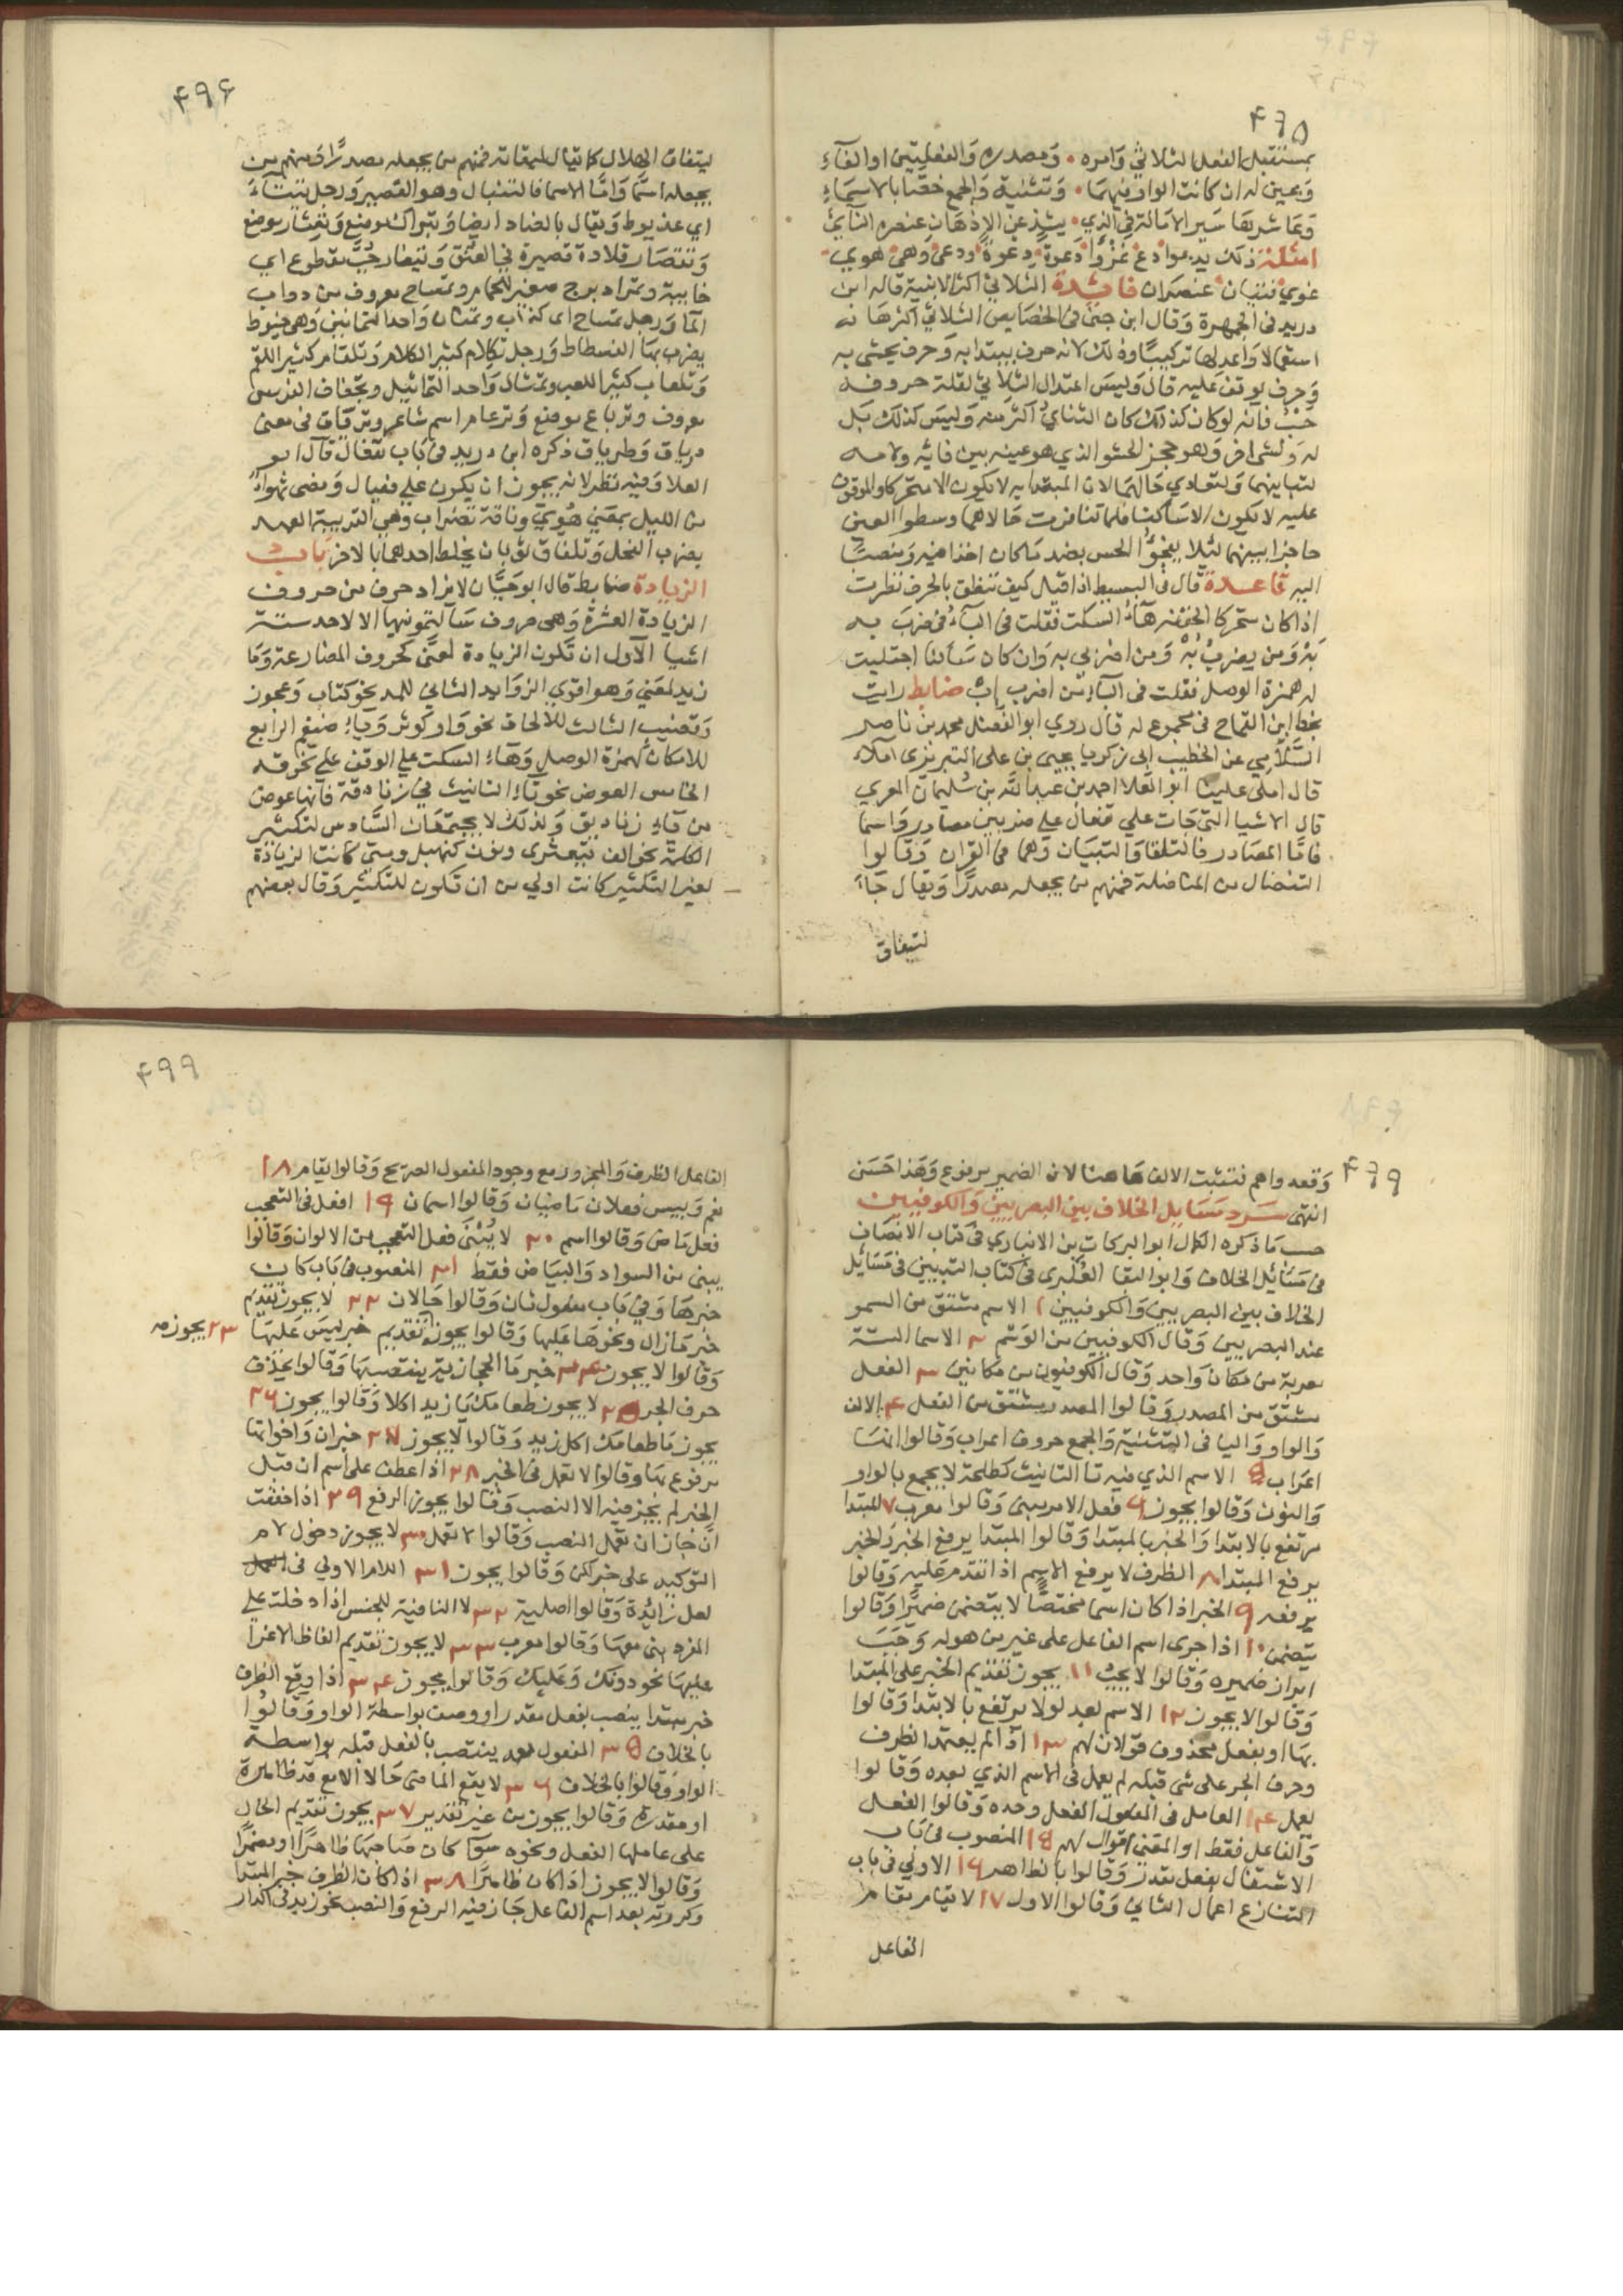 ۴۹۵
بمستقبل الفعل الثلاثي وامره ٠ ومصدره والفعليتين او الفآء
وبعين له ان كانت الواو فيهما ٠ وتثنية والجمع خصّا بالاسماء
وعاشرها سير الامالة في الذي ٠ يشذ عن الاذهان عنصره النائي
امثلة ذلك يدعوا دع غزوا دعوة دعوة ودعى وهى هوي
غوي فتيان عصران فائدة الثلاثي اكثر الابنية قاله ابن
دريد في الجمهرة وقال ابن جني في الخصايص الثلاثي اكثرها
استعمالا واعدلها تركيبا وذلك لانه حرف يبتدا به وحرف يحشى به
وحرف يوقف عليه قال وليس اعتدال الثلاثي لقلة حروفه
حسب فانه لو كان كذلك كان الثنايئ اكثر منه وليس كذلك بل
له ولشي اخر وهو حجز الحشو الذي هو عينه بين فائه ولامه
لتباينهما ولتعادي حالهما لان المبتدا به لا يكون الا متحركا والموقوف
عليه لا يكون الا ساكنا فلما تنافرت حالاهما وسطوا العين
حاجزا بينهما لئلا يفجؤا الحس بضد ما كان اخذا فيه ومنصبا
اليه قاعدة قال في البسيط اذا قيل كيف تنطق بالحرف نظرت
اذا كان متحركا الحقته هآء السكت فقلت في البآء من ضرب به
بَه ومن يضرب بُه ومن اضربي بِه وان كان ساكنا اجتلبت
له همزة الوصل فقلت في البآء من اضرب اِب ضابط رايت
بخط ابن القماح في مجموع له قال روي ابو الفضل محمد بن ناصر
السلامي عن الخطيب ابي زكريا يحيى بن على التبريزى املاء
قال املى علينا ابو العلا احمد بن عبد الله بن سليمان المعري
قال الاشيا التي جات علي تفعال على ضربين مصادر واسما
فاما المصادر فالتلقا والتبيان وهما في القران وقالوا
التنضال من المناضلة فمنهم من يجعله مصدرا ويقال جآء
لتيفاق
۴۹۶
لتيفاق الهلال كما يقال لميقاته فمنهم من يجعله مصدرًا ومنهم من
يجعله اسما واما الاسما فالتنبال وهو القصير ورجل تيتآء
اي عذيوط ويقال بالضاد ايضا وتبراك موضع وتعشار موضع
وتقصار قلادة قصيرة في العنق وتيغار حب مقطوع اي
خابية وتمراد برج صغير للحمام وتمساح معروف من دواب
المآ ورجل تمساح اى كذاب وتمتان واحد التمانين وهى خيوط
يضرب بها الفسطاط ورجل تكلام كثير الكلام وتلقام كثير اللقم
وتلعاب كثير اللعب وتمثال واحد التماثيل وتجفاف الفرس
معروف وترباع موضع وترعام اسم شاعر وترياق في معنى
درياق وطرياق ذكره ابن دريد في باب تفعال قال ابو
العلا وفيه نظر لانه يجوز ان يكون على فعيال ومضى تهواء
من الليل بمعنى هوي وناقة تضراب وهي القريبة العهد
بضراب الفحل وتلفاق ثوبان يخلط احدهما بالاخر باب
الزيادة ضابط قال ابو حيان لا يزاد حرف من حروف
الزيادة العشرة وهي حروف سالتمونيها الا لاحد ستة
اشيا الاول ان تكون الزيادة لمعنى كحروف المضارعة وما
زيد لمعنى وهو اقوى الزوايد الثاني للمد نحو كتاب وعجوز
وقضيب الثالث للالحاق نحو واو كوثر وياء ضيغم الرابع
للامكان كهمزة الوصل وهاء السكت على الوقف على نحو قه
الخامس العوض نحو تاء التانيث في زنادقة فانها عوض
من ياء زناديق ولذلك لا يجتمعان السادس لتكثير
الكلمة نحو الف قبعثرى ونون كنهبل ومتى كانت الزيادة
لغير التكثير كانت اولى من ان تكون للتكثير وقال بعضهم
۴۹۹
وقعه واهم فتثبت الالف هاهنا لان الضمير مرفوع وهذا حسن
انتهى سرد مسايل الخلاف بين البصريين والكوفيين
حسب ما ذكره الكمال ابو البركات بن الانباري في كتاب الانصاف
في مسائل الخلاف وابو البقا العُكبرى في كتاب التبيين في مسائل
الخلاف بين البصريين والكوفيين ١ الاسم مشتق من السمو
عند البصريين وقال الكوفيين من الوسم ٢ الاسما الستة
معربة من مكان واحد وقال الكوفيون من مكانين ٣ الفعل
مشتق من المصدر وقالوا المصدر مشتق من الفعل ۴ الالف
والواو واليا في التثنية والجمع حروف اعراب وقالوا انها
اعراب ٥ الاسم الذي فيه تا التانيث كطلحة لا يجمع بالواو
والنون وقالوا يجوز ۶ فعل الامر مبنى وقالوا معرب ٧ المبتدا
مرتفع بالابتدا والخبر بالمبتدا وقالوا المبتدا يرفع الخبر والخبر
يرفع المبتدا ٨ الظرف لا يرفع الاسم اذا تقدم عليه وقالوا
يرفعه ٩ الخبر اذا كان اسما مختصا لا يتضمن ضميرا وقالوا
يتضمن ١٠ اذا جرى اسم الفاعل على غير من هو له وجب
ابراز ضميره وقالوا لا يجب ١١ يجوز تقديم الخبر على المبتدا
وقالوا لا يجوز ١٢ الاسم بعد لولا يرتفع بالابتدا وقالوا
بها او بفعل محذوف قولان لهم ١٣ اذا لم يعتمد الظرف
وحرف الجر على شي قبله لم يعمل في الاسم الذي بعده وقالوا
يعمل ١۴ العامل في المفعول الفعل وحده وقالوا الفعل
والفاعل فقط او المعنى اقوال لهم ١٥ المنصوب في باب
الاشتغال بفعل مقدر وقالوا بالظاهر ١۶ الاولي في باب
التنازع اعمال الثاني وقالوا الاول ١٧ لا يقام مقام
الفاعل
۴۹۹
الفاعل الظرف والمجرور مع وجود المفعول الصريح وقالوا يقام ١٨
نعم وبيس فعلان ماضيان وقالوا اسمان ١٩ افعل في التعجب
فعل ماض وقالوا اسم ٢٠ لا يُبنى فعل التعجب من الالوان وقالوا
يبنى من السواد والبياض فقط ٢١ المنصوب في باب كان
خبرها وفي باب مفعول ثان وقالوا حالان ٢٢ لا يجوز تقديم
خبر مازال ونحوها عليها وقالوا يجوز تقديم خبر ليس عليها ٢٣ يجوز
وقالوا لا يجوز ٢۴ خبر ما الحجازية ينتصب بها وقالوا بحذف
حرف الجر ٢٥ لا يجوز طعامك ما زيد اكلا وقالوا يجوز ٢۶
يجوز ما طعامك اكل زيد وقالوا لا يجوز ٢٧ خبر ان واخواتها
مرفوع بها وقالوا لا تعمل في الخبر ٢٨ اذا عطف على اسم ان قبل
الخبر لم يجز فيه الا النصب وقالوا يجوز الرفع ٢٩ اذا خففت
ان جاز ان تعمل النصب وقالوا لا تعمل ٣٠ لا يجوز دخول لام
التوكيد على خبر لكن وقالوا يجوز ٣١ اللام الاولي في
لعل زائدة وقالوا اصلية ٣٢ لا النافية للجنس اذا دخلت على
المفرد بنى معها وقالوا معرب ٣٣ لا يجوز تقديم الفاظ الاغرا
عليها نحو دونك وعليك وقالوا يجوز ٣۴ اذا وقع الظرف
خبر مبتدا ينصب بفعل مقدر او وصف بواسطة الواو وقالوا
بالخلاف ٣٥ المفعول معه ينتصب بالفعل قبله بواسطة
الواو وقالوا بالخلاف ٣۶ لا يقع الماضى حالا الا مع قد ظاهرة
او مقدرة وقالوا يجوز من غير تقدير ٣٧ يجوز تقديم الحال
على عاملها الفعل ونحوه سوآ كان صاحبها ظاهرا او مضمرا
وقالوا لا يجوز اذا كان ظاهرا ٣٨ اذا كان الظرف خبر المبتدا
وكررته بعد اسم الفاعل جاز فيه الرفع والنصب نحو زيد في الدار